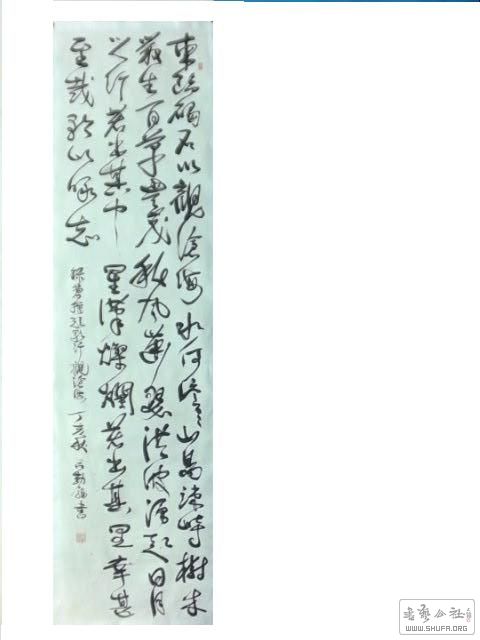 東臨碣石以觀滄海水何澹澹山島竦峙樹木
叢生百草豐茂秋風蕭瑟洪波湧起日月
之行若出其中星漢燦爛若出其里幸甚
至哉歌以咏志
錄曹操 行觀滄海 丁亥秋 書
书艺公社
WWW.SHUFA.ORG